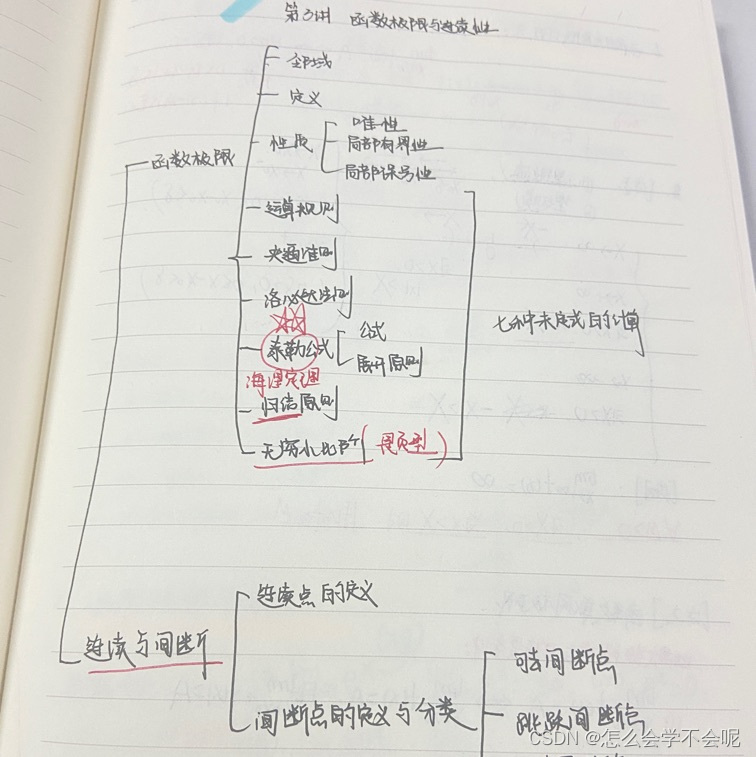 第3讲 函数极限与连续性
函数极限
全邻域
定义
性质
唯一性
局部有界性
局部保号性
运算规则
夹逼准则
洛必达法则
泰勒公式
公式
展开原则
海涅定理
归结原则
无穷小比阶
七种未定式的计算
连续与间断
连续点的定义
间断点的定义与分类
可去间断点
跳跃间断点
CSDN @怎么会学不会呢